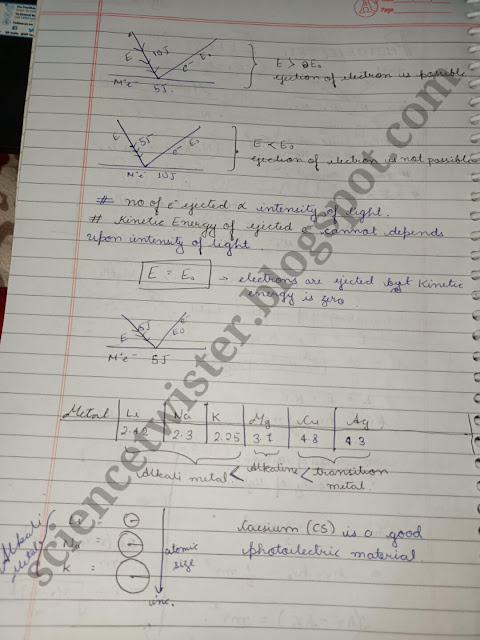 Page
E 10J e⁻ E₀
M⁺e⁻ 5J.
E > E₀
ejection of electron is possible
E 5J e⁻ E₀
M⁺e⁻ 10J
E < E₀
ejection of electron is not possible
# no of e⁻ ejected ∝ intensity of light.
# Kinetic Energy of ejected e⁻ cannot depends
upon intensity of light
E = E₀ → electrons are ejected but Kinetic
energy is zero
E 5J e⁻ E₀
M⁺e⁻ 5J
Metal Li Na K Mg Cu Ag
2.42 2.3 2.25 3.7 4.8 4.3
Alkali metal < Alkaline < transition
metal
Alkali
metal
Li =
Na =
K =
atomic
size
inc.
Caesium (CS) is a good
photoelectric material
sciencetwister.blogspot.com